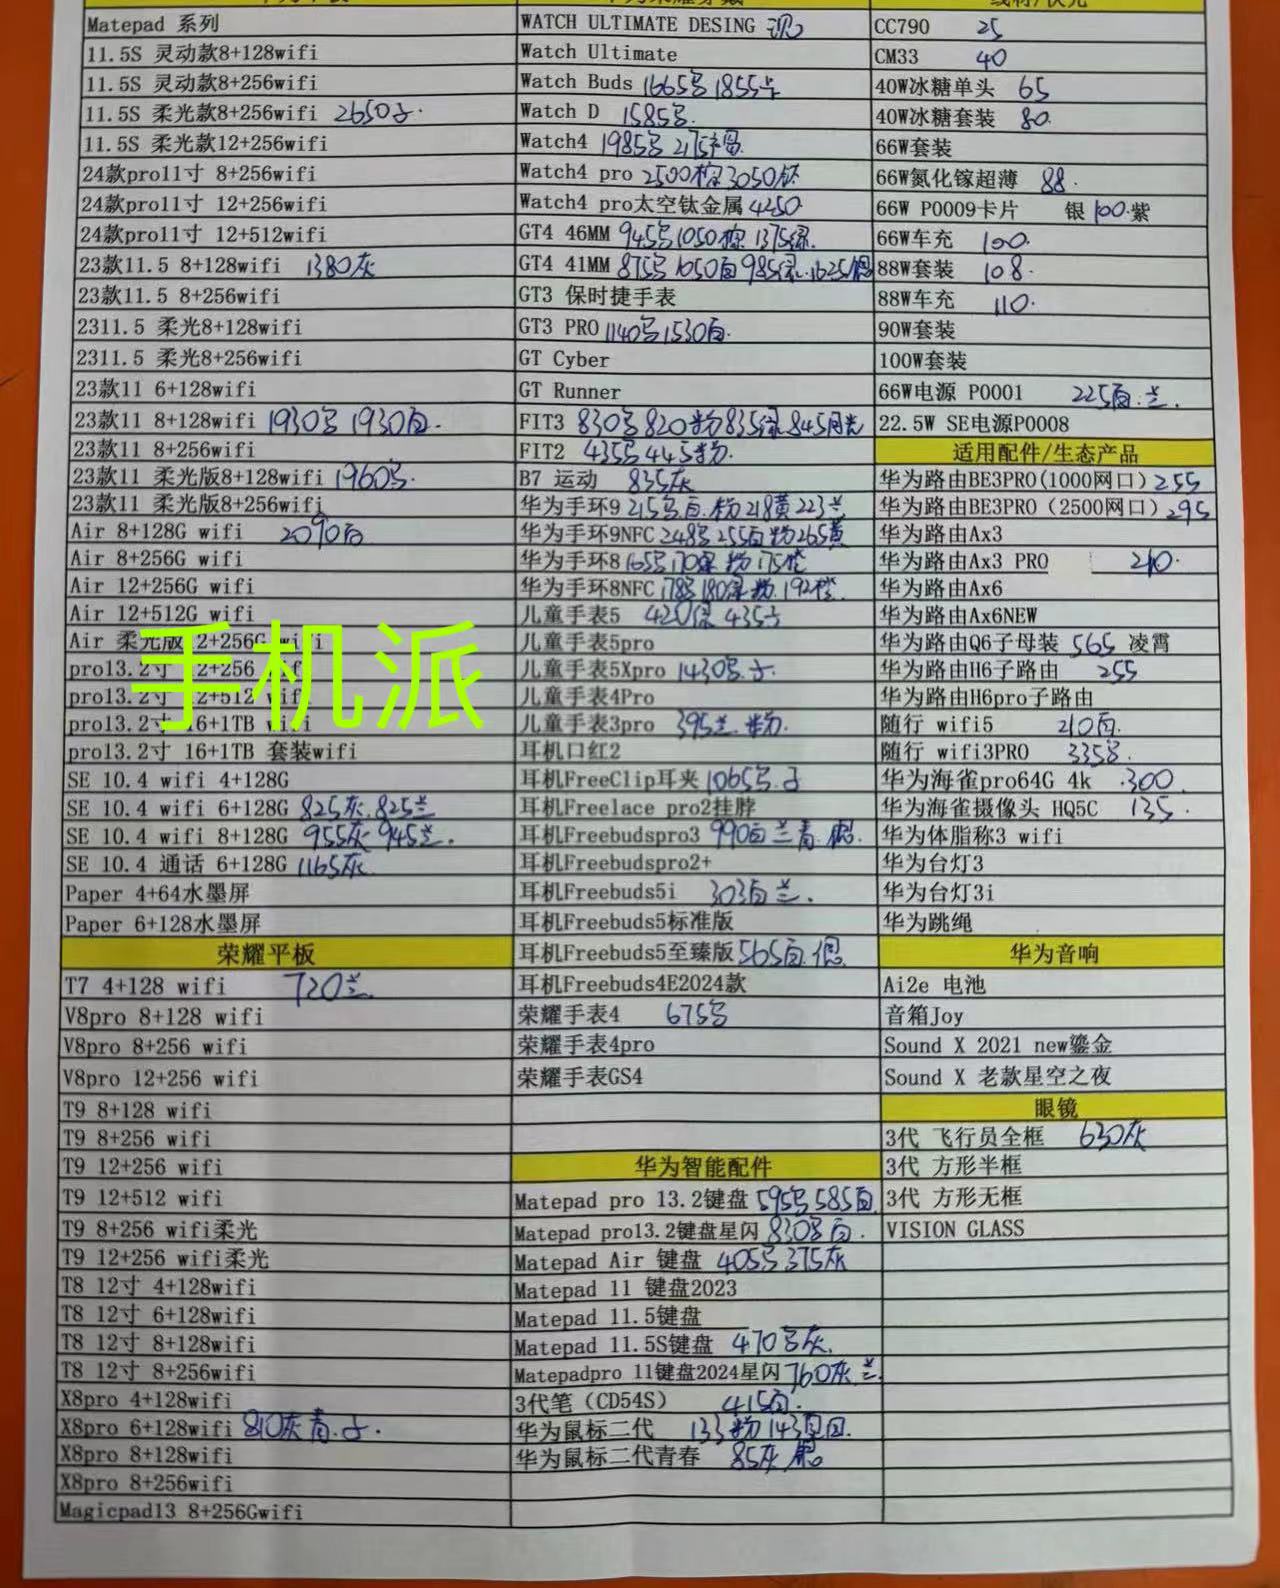 Matepad 系列
11.5S 灵动款8+128wifi
11.5S 灵动款8+256wifi
11.5S 柔光款8+256wifi 2650
11.5S 柔光款12+256wifi
24款pro11寸 8+256wifi
24款pro11寸 12+256wifi
24款pro11寸 12+512wifi
23款11.5 8+128wifi 1380灰
23款11.5 8+256wifi
2311.5 柔光8+128wifi
2311.5 柔光8+256wifi
23款11 6+128wifi
23款11 8+128wifi 1930 1930白
23款11 8+256wifi
23款11 柔光版8+128wifi 1960
23款11 柔光版8+256wifi
Air 8+128G wifi 2090白
Air 8+256G wifi
Air 12+256G wifi
Air 12+512G wifi
Air 柔光版12+256G wifi
手机派
pro13.2寸 12+256 wifi
pro13.2寸 12+512 wifi
pro13.2寸 16+1TB wifi
pro13.2寸 16+1TB 套装wifi
SE 10.4 wifi 4+128G
SE 10.4 wifi 6+128G 825灰.825兰
SE 10.4 wifi 8+128G 955灰 945兰.
SE 10.4 通话 6+128G 1165灰
Paper 4+64水墨屏
Paper 6+128水墨屏
荣耀平板
T7 4+128 wifi 720兰
V8pro 8+128 wifi
V8pro 8+256 wifi
V8pro 12+256 wifi
T9 8+128 wifi
T9 8+256 wifi
T9 12+256 wifi
T9 12+512 wifi
T9 8+256 wifi柔光
T9 12+256 wifi柔光
T8 12寸 4+128wifi
T8 12寸 6+128wifi
T8 12寸 8+128wifi
T8 12寸 8+256wifi
X8pro 4+128wifi
X8pro 6+128wifi 810灰青
X8pro 8+128wifi
X8pro 8+256wifi
Magicpad13 8+256Gwifi
WATCH ULTIMATE DESING
Watch Ultimate
Watch Buds 1665 1855
Watch D 1585
Watch4 1985 2175
Watch4 pro 2500棕3050钛
Watch4 pro太空钛金属4250
GT4 46MM 945 1050棕 1375绿.
GT4 41MM 875 1050白985绿.1625
GT3 保时捷手表
GT3 PRO 1140 1530白.
GT Cyber
GT Runner
FIT3 830 820粉835绿845月光
FIT2 435 445粉.
B7 运动 835灰
华为手环9 215 白.粉218黄223兰
华为手环9NFC 248 255白粉265黄
华为手环8 165 170绿粉175橙
华为手环8NFC 178 180绿粉.192橙.
儿童手表5 420绿 435
儿童手表5pro
儿童手表5Xpro 1430
儿童手表4Pro
儿童手表3pro 395兰.粉.
耳机口红2
耳机FreeClip耳夹1065
耳机Freelace pro2挂脖
耳机Freebudspro3 990白兰青.银.
耳机Freebudspro2+
耳机Freebuds5i 303白兰.
耳机Freebuds5标准版
耳机Freebuds5至臻版565白.银
耳机Freebuds4E2024款
荣耀手表4 675
荣耀手表4pro
荣耀手表GS4
华为智能配件
Matepad pro 13.2键盘 595 585白
Matepad pro13.2键盘星闪 830 白.
Matepad Air 键盘 405 375灰
Matepad 11 键盘2023
Matepad 11.5键盘
Matepad 11.5S键盘 470 灰.
Matepadpro 11键盘2024星闪760灰.兰
3代笔（CD54S） 415白.
华为鼠标二代 133粉143
华为鼠标二代青春 85灰 银
CC790 25
CM33 40
40W冰糖单头 65
40W冰糖套装 80.
66W套装
66W氮化镓超薄 88.
66W P0009卡片 银100.紫
66W车充 100.
88W套装 108.
88W车充 110.
90W套装
100W套装
66W电源 P0001 225白.兰.
22.5W SE电源P0008
适用配件/生态产品
华为路由BE3PRO(1000网口) 255
华为路由BE3PRO（2500网口）295
华为路由Ax3
华为路由Ax3 PRO 210.
华为路由Ax6
华为路由Ax6NEW
华为路由Q6子母装 565 凌霄
华为路由H6子路由 255
华为路由H6pro子路由
随行 wifi5 210白.
随行 wifi3PRO 335
华为海雀pro64G 4k .300
华为海雀摄像头 HQ5C 135.
华为体脂称3 wifi
华为台灯3
华为台灯3i
华为跳绳
华为音响
Ai2e 电池
音箱Joy
Sound X 2021 new鎏金
Sound X 老款星空之夜
眼镜
3代 飞行员全框 630灰
3代 方形半框
3代 方形无框
VISION GLASS